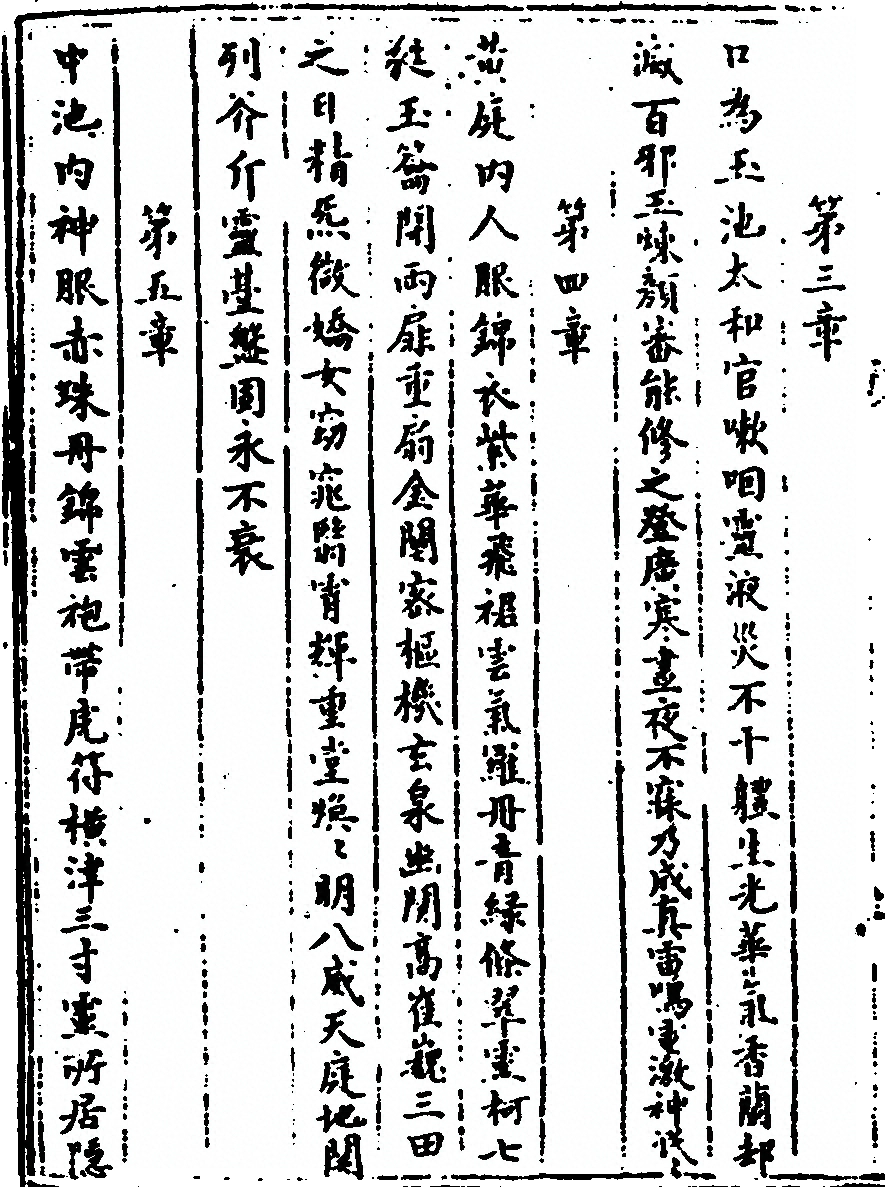 第三章
口為玉池太和官嗽咽靈液災不干體生光華氣香蘭却
滅百邪玉煉顏審能修之登廣寒晝夜不寐乃成真雷鳴電激神泯〻
第四章
黃庭内人服錦衣紫華飛裙雲氣羅丹青綠條翠靈柯七
蕤玉籥閉兩扉重扇金關密樞機玄泉幽関高崔巍三田
之日精炁微嬌女窈窕翳宵輝重堂煥〻明八威天庭地関
列斧斤靈臺盤固永不衰
第五章
中池内神服赤珠丹錦雲袍帶虎符横津三寸靈所居隱